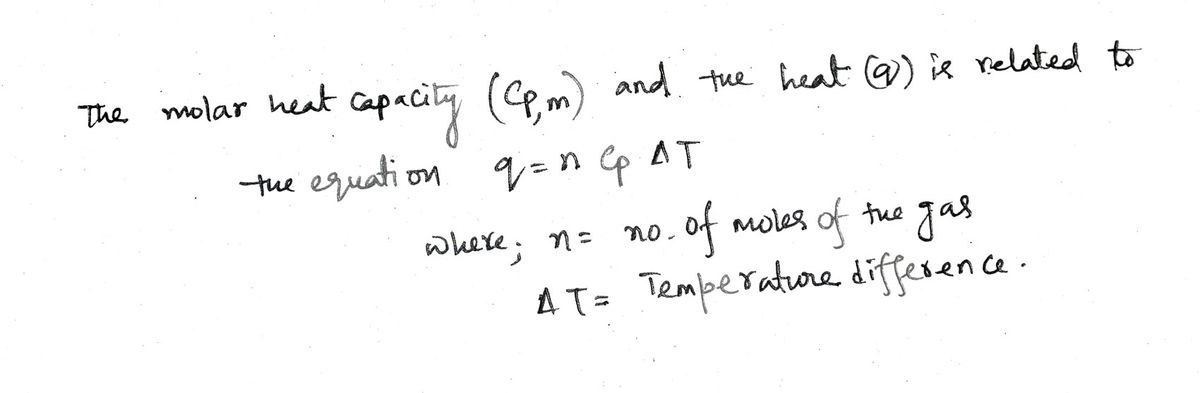 The molar heat capacity (Cp,m) and the heat (q) is related to
the equation q = n Cp ΔT
where; n = no. of moles of the gas
ΔT = Temperature difference.